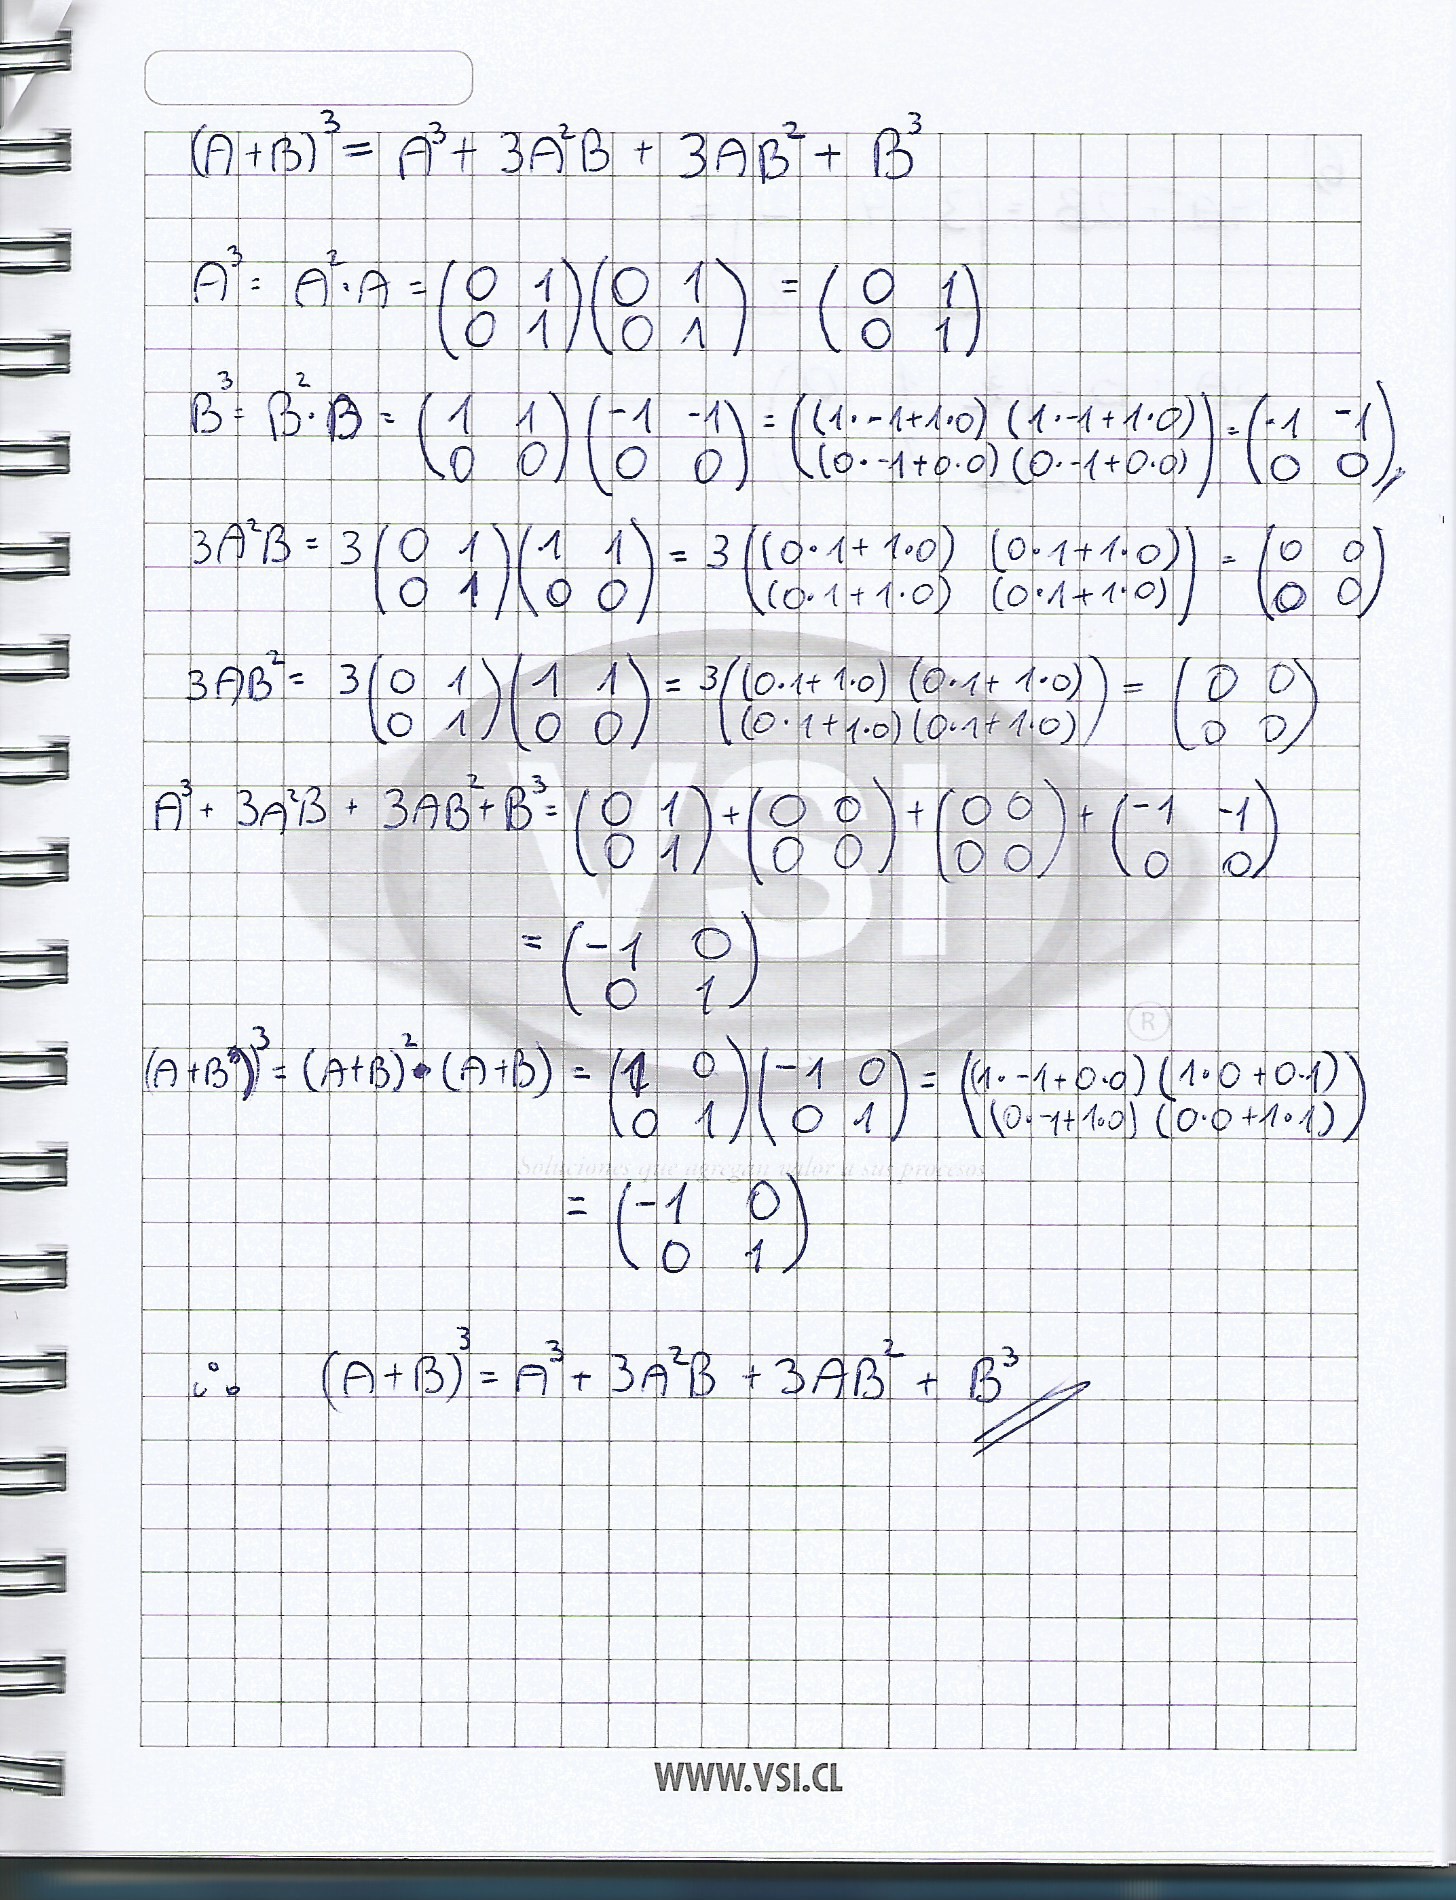 (A+B)³ = A³ + 3A²B + 3AB² + B³
A³ = A²·A = (0 1; 0 1)(0 1; 0 1) = (0 1; 0 1)
B³ = B²·B = (1 1; 0 0)(-1 -1; 0 0) = ((1·-1+1·0) (1·-1+1·0); (0·-1+0·0) (0·-1+0·0)) = (-1 -1; 0 0)
3A²B = 3(0 1; 0 1)(1 1; 0 0) = 3((0·1+1·0) (0·1+1·0); (0·1+1·0) (0·1+1·0)) = (0 0; 0 0)
3AB² = 3(0 1; 0 1)(1 1; 0 0) = 3((0·1+1·0) (0·1+1·0); (0·1+1·0) (0·1+1·0)) = (0 0; 0 0)
A³ + 3A²B + 3AB² + B³ = (0 1; 0 1) + (0 0; 0 0) + (0 0; 0 0) + (-1 -1; 0 0)
= (-1 0; 0 1)
(A+B)³ = (A+B)²·(A+B) = (1 0; 0 1)(-1 0; 0 1) = ((1·-1+0·0) (1·0+0·1); (0·-1+1·0) (0·0+1·1))
= (-1 0; 0 1)
∴ (A+B)³ = A³ + 3A²B + 3AB² + B³
VSI
®
Soluciones que agregan valor a sus procesos
WWW.VSI.CL